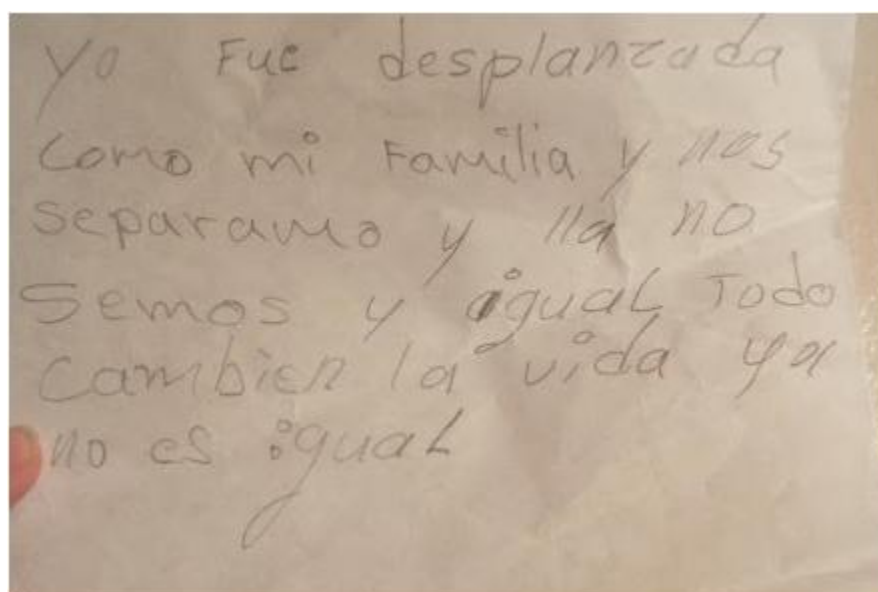 yo Fue desplanzada
como mi Familia y nos
separamo y lla no
semos y igual Todo
cambien la vida ya
no es igual